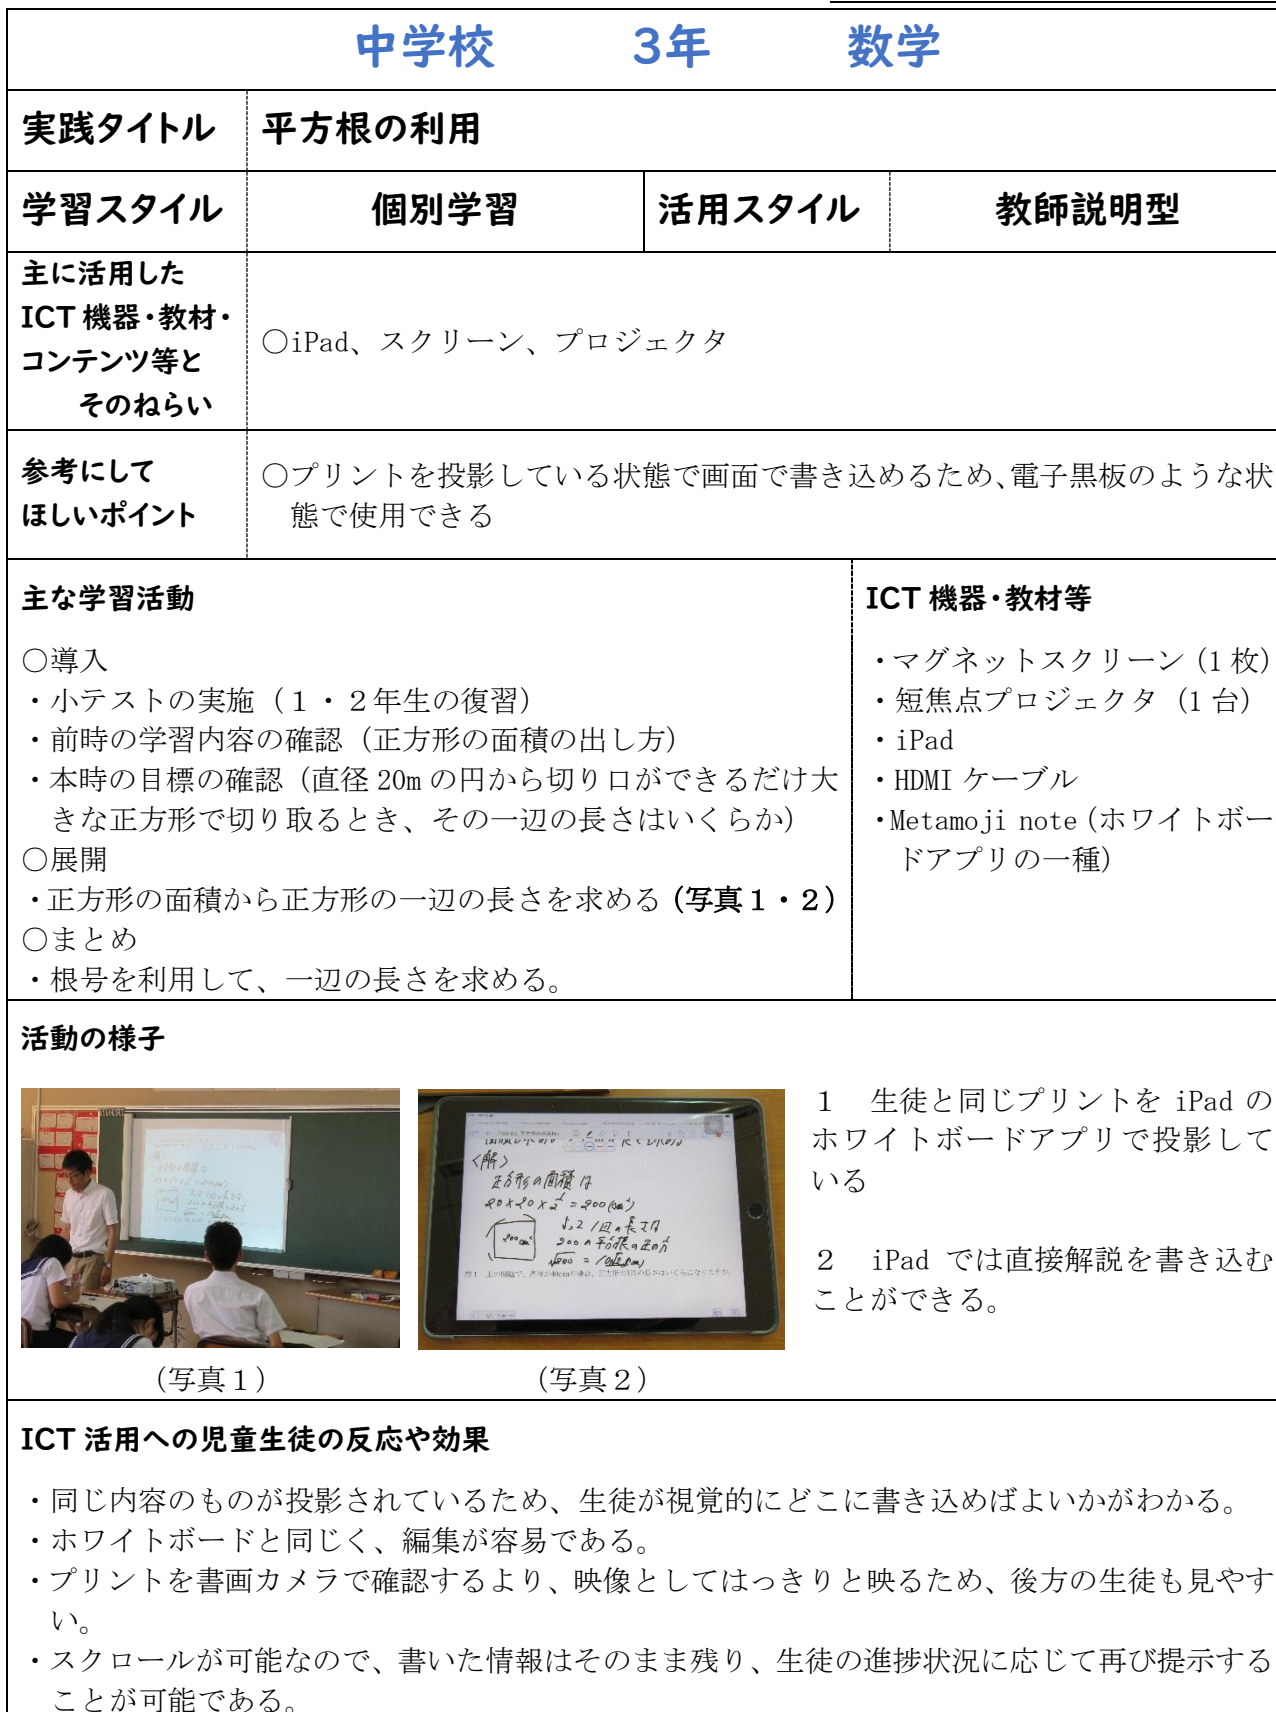 中学校　3年　数学
実践タイトル　平方根の利用
学習スタイル　個別学習　活用スタイル　教師説明型
主に活用した
ICT 機器・教材・
コンテンツ等と
そのねらい
○iPad、スクリーン、プロジェクタ
参考にして
ほしいポイント
○プリントを投影している状態で画面で書き込めるため、電子黒板のような状
態で使用できる
主な学習活動
○導入
・小テストの実施（１・２年生の復習）
・前時の学習内容の確認（正方形の面積の出し方）
・本時の目標の確認（直径 20m の円から切り口ができるだけ大
きな正方形で切り取るとき、その一辺の長さはいくらか）
○展開
・正方形の面積から正方形の一辺の長さを求める（写真１・２）
○まとめ
・根号を利用して、一辺の長さを求める。
ICT 機器・教材等
・マグネットスクリーン（1 枚）
・短焦点プロジェクタ（1 台）
・iPad
・HDMI ケーブル
・Metamoji note（ホワイトボー
ドアプリの一種）
活動の様子
<解>
正方形の面積は
20×20×1/2=200(cm²)
200cm²
よって1辺の長さは
200の平方根の正の方
√200 = 10√2(cm)
（写真１）
（写真２）
１　生徒と同じプリントを iPad の
ホワイトボードアプリで投影して
いる
２　iPad では直接解説を書き込む
ことができる。
ICT 活用への児童生徒の反応や効果
・同じ内容のものが投影されているため、生徒が視覚的にどこに書き込めばよいかがわかる。
・ホワイトボードと同じく、編集が容易である。
・プリントを書画カメラで確認するより、映像としてはっきりと映るため、後方の生徒も見やす
い。
・スクロールが可能なので、書いた情報はそのまま残り、生徒の進捗状況に応じて再び提示する
ことが可能である。